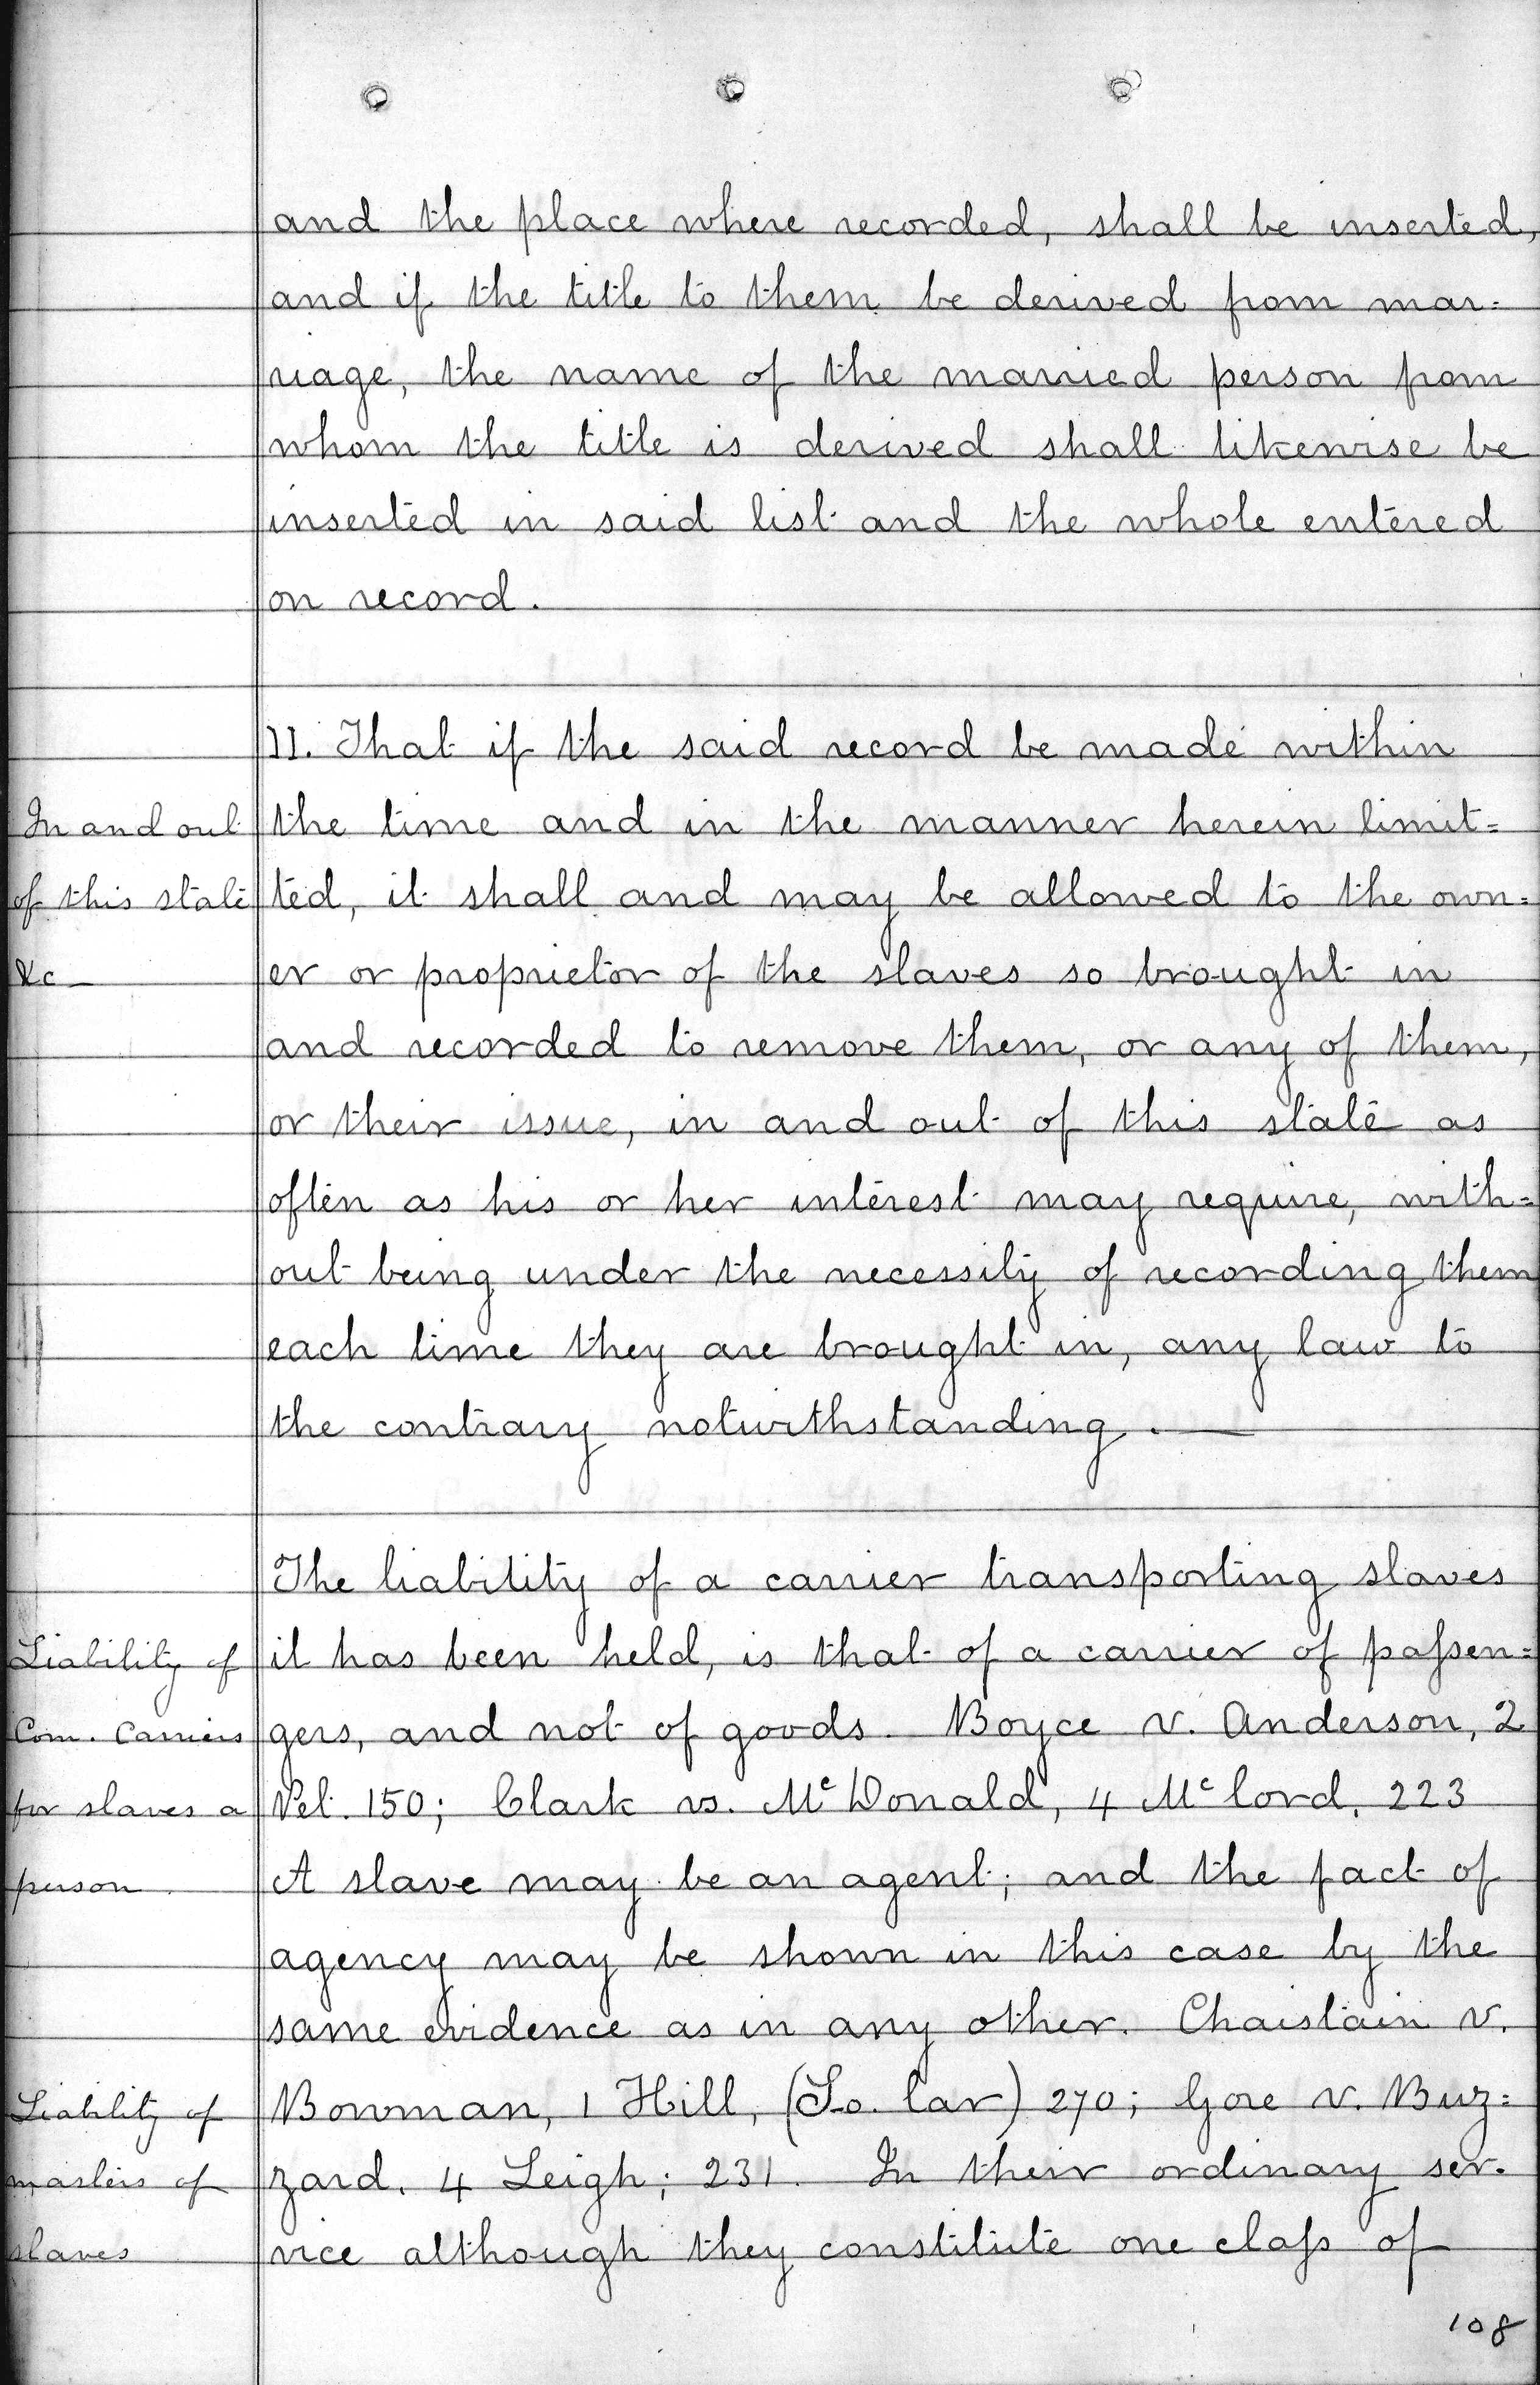 and the place where recorded, shall be inserted,
and if the title to them be derived from mar=
riage, the name of the married person from
whom the title is derived shall likewise be
inserted in said list and the whole entered
on record.
II. That if the said record be made within
In and out
the time and in the manner herein limit=
of this state
ted, it shall and may be allowed to the own=
&c
er or proprietor of the slaves so brought in
and recorded to remove them, or any of them,
or their issue, in and out of this state as
often as his or her interest may require, with=
out being under the necessity of recording them
each time they are brought in, any law to
the contrary notwithstanding.
The liability of a carrier transporting slaves
Liability of
it has been held, is that of a carrier of passen=
Com. Carriers
gers, and not of goods. Boyce v. Anderson, 2
for slaves a
Pet. 150; Clark vs. McDonald, 4 McCord, 223
person
A slave may be an agent; and the fact of
agency may be shown in this case by the
same evidence as in any other. Chaistain v.
Liability of
Bowman, 1 Hill, (So. Car) 270; Gore v. Buz=
masters of
zard. 4 Leigh; 231. In their ordinary ser-
slaves
vice although they constitute one class of
108